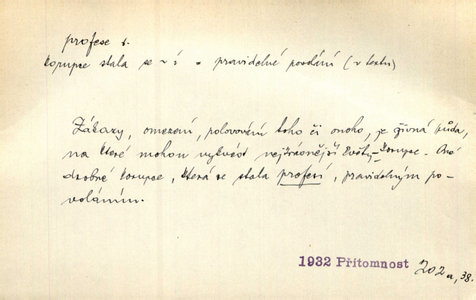 profese f.
korupce stala se ~ í = pravidelné povolání (v textu)
Zákazy, omezení, polovování toho či onoho, je živná půda,
na které mohou vykvést nejkrásnější květy korupce. Ony
drobné korupce, která se stala profesí, pravidelným po-
voláním.
1932 Přítomnost 202a, 38.